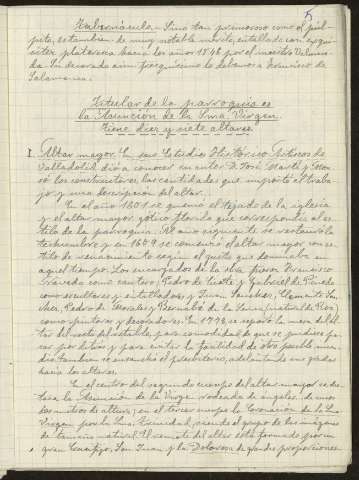 5
Tabernáculo.- Si no tan primoroso como el púl-
pito, es también de muy notable mérito, entallado con exqui-
sitez plateresca hacia los años 1548 por el maestro
da. Su decorado
Salamanca.
Titular de la parroquia es
la Asunción de la Sma. Virgen.
Tiene diez y siete altares.
I. Altar mayor. En sus Estudios Histórico Artísticos de
Valladolid dió a conocer su autor D. José Martí y Monsó
los constructores, las cantidades que importó el traba-
jo y una descripción del altar.
En el año 1601 se quemó el tejado de la iglesia
y el altar mayor gótico florido que correspondía al es-
tilo de la parroquia. Al año siguiente se restauró la
techumbre y en 1607 se comenzó el altar mayor, con es-
tilo de renacimiento según el gusto que dominaba en
aquel tiempo. Los encargados de la obra fueron Francisco
como cantero, Pedro de y Gabriel de Pinedo
como escultores y entalladores y Juan Sánchez, Clemente Sán-
chez, Pedro de y Bernabé de la Serna, natural de
como pintores y decoradores. En 1778 se separó la mesa del al-
tar del resto del retablo, para comodidad de que se pudiese pa-
sar por detrás y para evitar la facilidad de otro posible incen-
dio; también se ensanchó el presbiterio, adelantando sus gradas
hacia los altares.
En el centro del segundo cuerpo del altar mayor se des-
taca la Asunción de la Virgen rodeada de ángeles, de unos
dos metros de altura; en el tercer cuerpo la Coronación de la Sma.
Virgen por la Sma. Trinidad, siendo el grupo de las imágenes
de tamaño natural. El remate del altar está formado por un
gran Crucifijo, San Juan y la Dolorosa de grandes proporciones